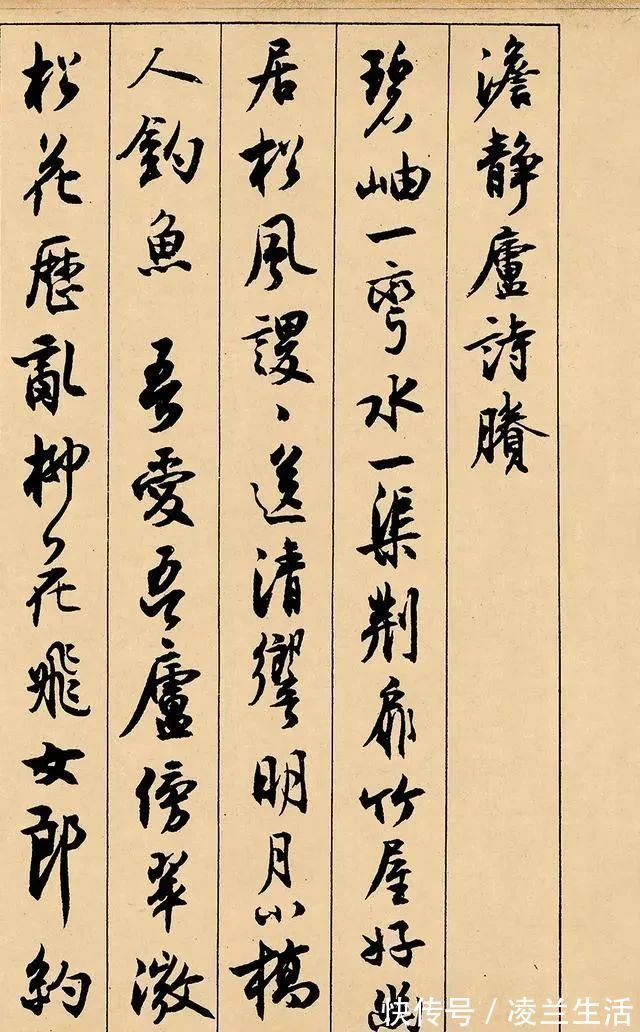 澹靜廬詩賸
碧岫一彎水一渠荆扉竹屋好幽
居松風謖〻送清響明月小橋
人釣魚 吾愛吾廬傍翠微
松花歷亂柳花飛女郎約
快传号/凌兰生活